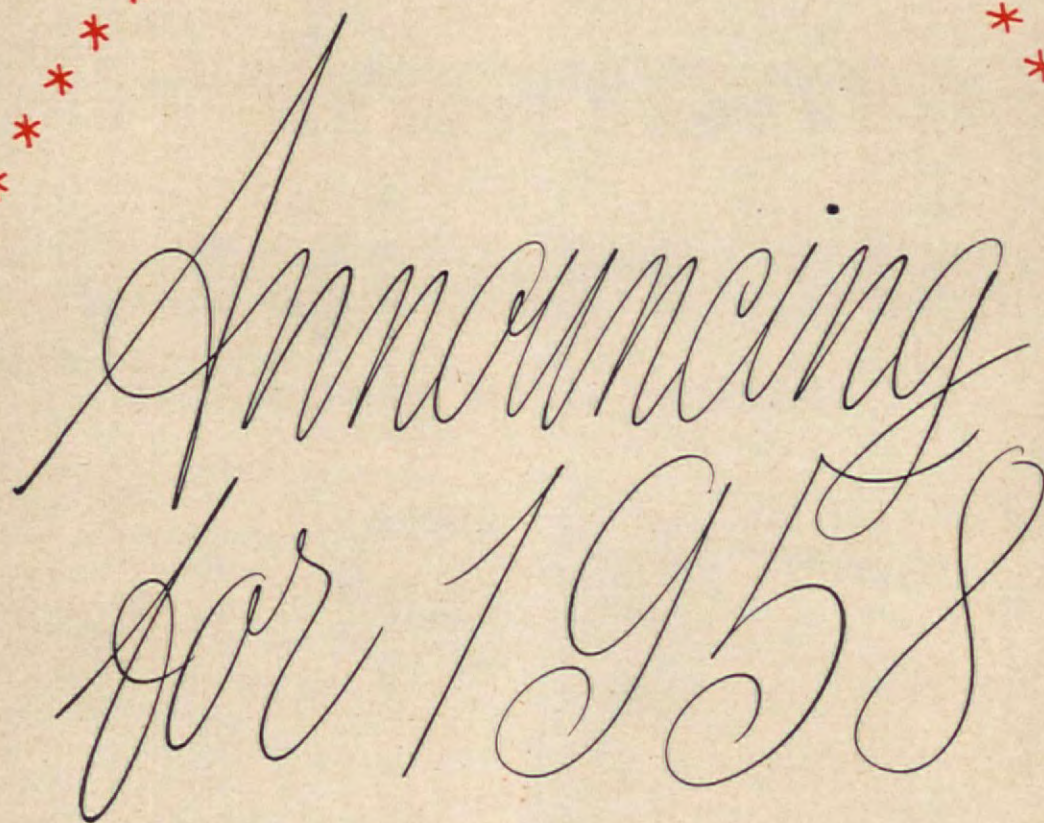 Announcing
for 1958